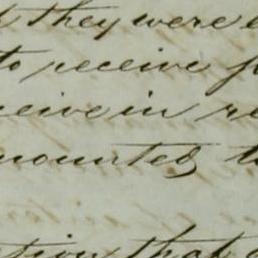 they were
to receive
ceive in re
mounted t
tion that